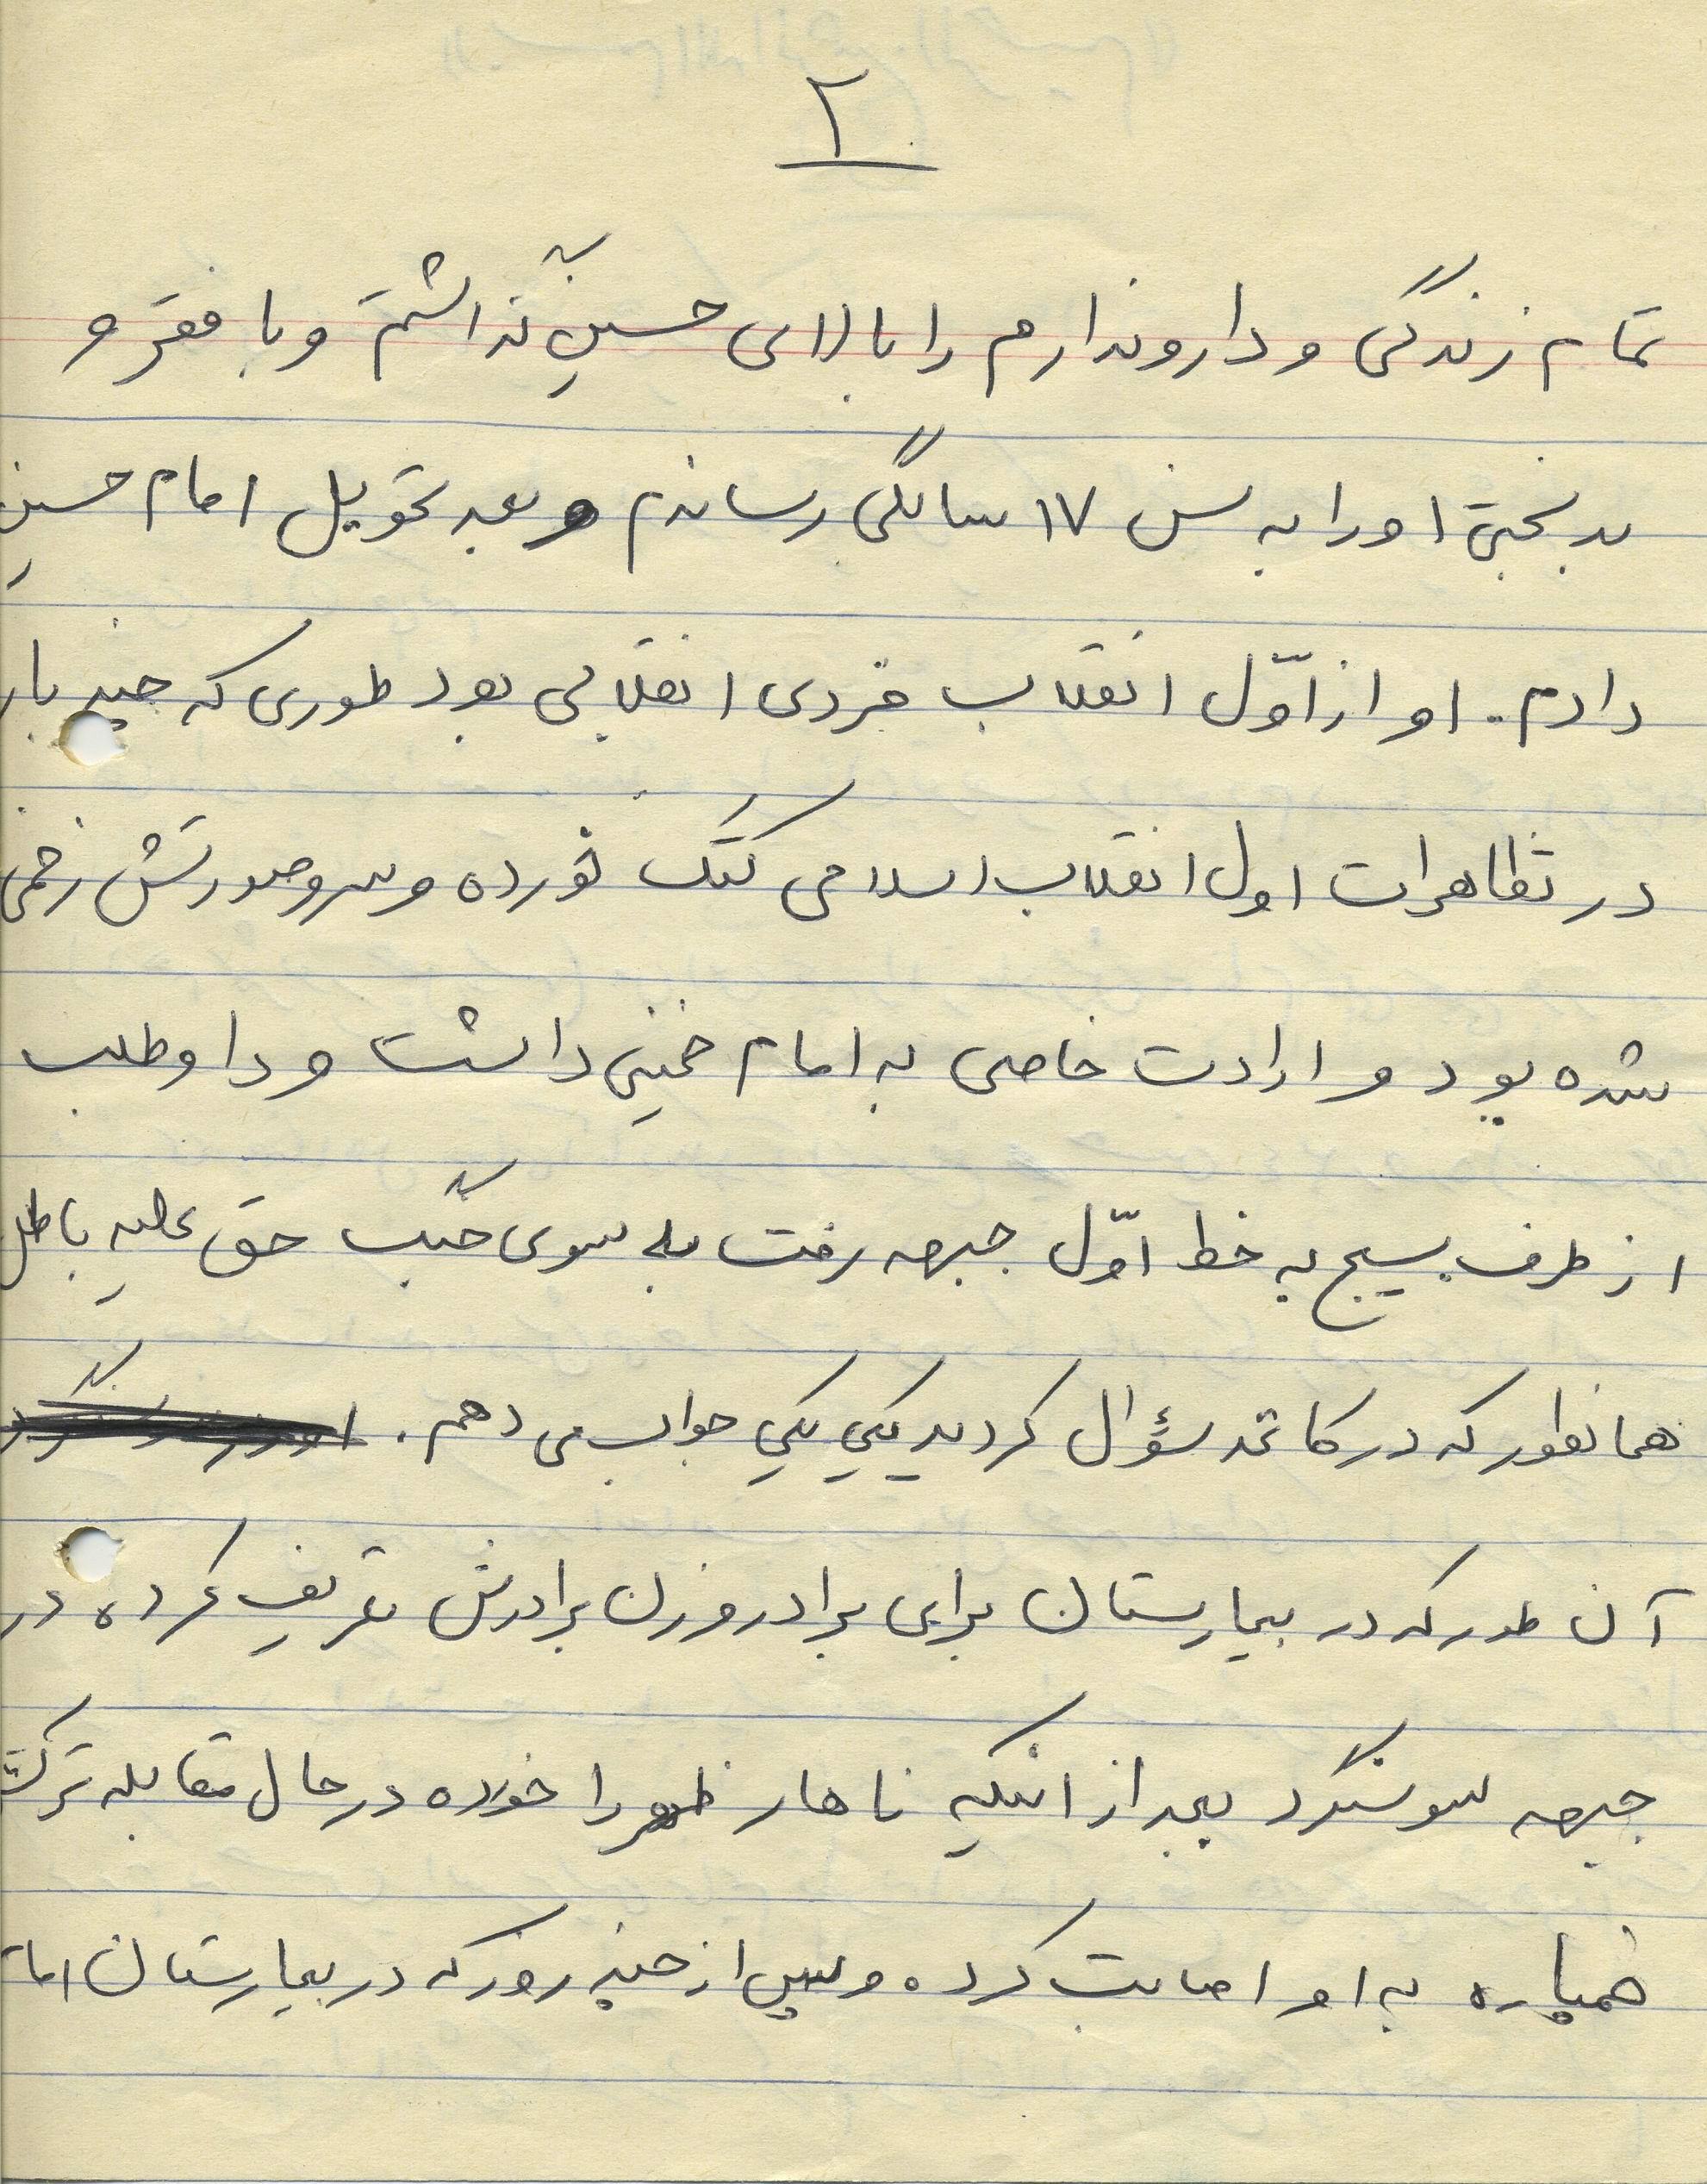 ۲
تمام زندگی و داروندارم را بالای حسین گذاشتم و با فقر و
بدبختی او را به سن ۱۷ سالگی رساندم و بعد تحویل امام حسین
دادم. او از اوّل انقلاب فردی انقلابی بود طوری که چند بار
در تظاهرات اول انقلاب اسلامی کتک خورده و سر و صورتش زخمی
شده بود و ارادت خاصی به امام خمینی داشت و داوطلب
از طرف بسیج به خط اوّل جبهه رفت به سوی جنگ حق علیه باطل
همانطور که در کاغذ سؤال کردید یکی یکی جواب می دهم.
آن طور که در بیمارستان برای برادر و زن برادرش تعریف کرده در
جبهه سوسنگرد بعد از اینکه ناهار ظهر را خورده در حال مقابله ترکش
خمپاره به او اصابت کرده و پس از چند روز که در بیمارستان امام